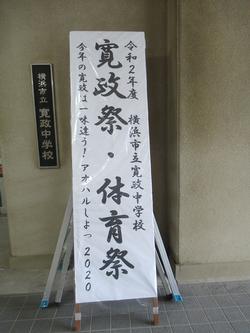 令和2年度 横浜市立寛政中学校
寛政祭・体育祭
今年の寛政は一味違う!アオハルしよっ2020
横浜市立 寛政中学校